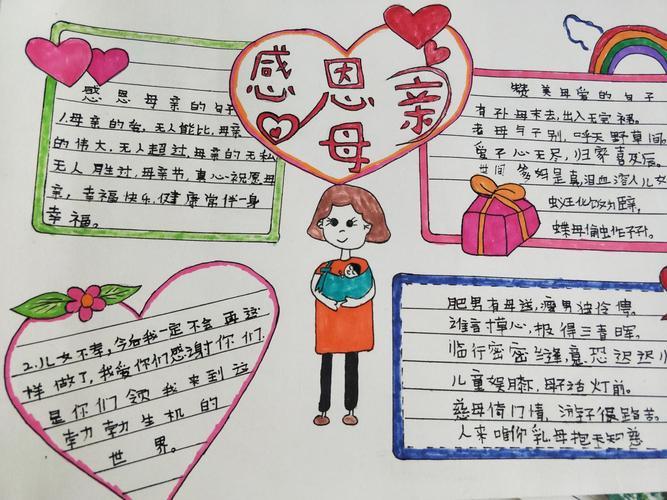 感恩
母亲
感恩母亲的句子
1.母亲的爱,无人能比,母亲
的伟大,无人超过,母亲的无私
无人胜过,母亲节,衷心祝愿母
亲,幸福快乐,健康常伴一身
幸福。
赞美母爱的句子
有孙母未去,出入无完裙。
老母与子别,呼天野草间
爱子心无尽,归家喜及辰。
世间爹妈是真,泪血溶入儿女
2.儿女不孝,今后我一定不会再这
样做了,我爱你们感谢你们
是你们领我来到这
勃勃生机的
世界。
肥男有母送,瘦男独伶俜。
谁言寸草心,报得三春晖。
临行密密缝,意恐迟迟
儿童娱膝前,母子活灯前。
慈母倚门情,游子很路苦。